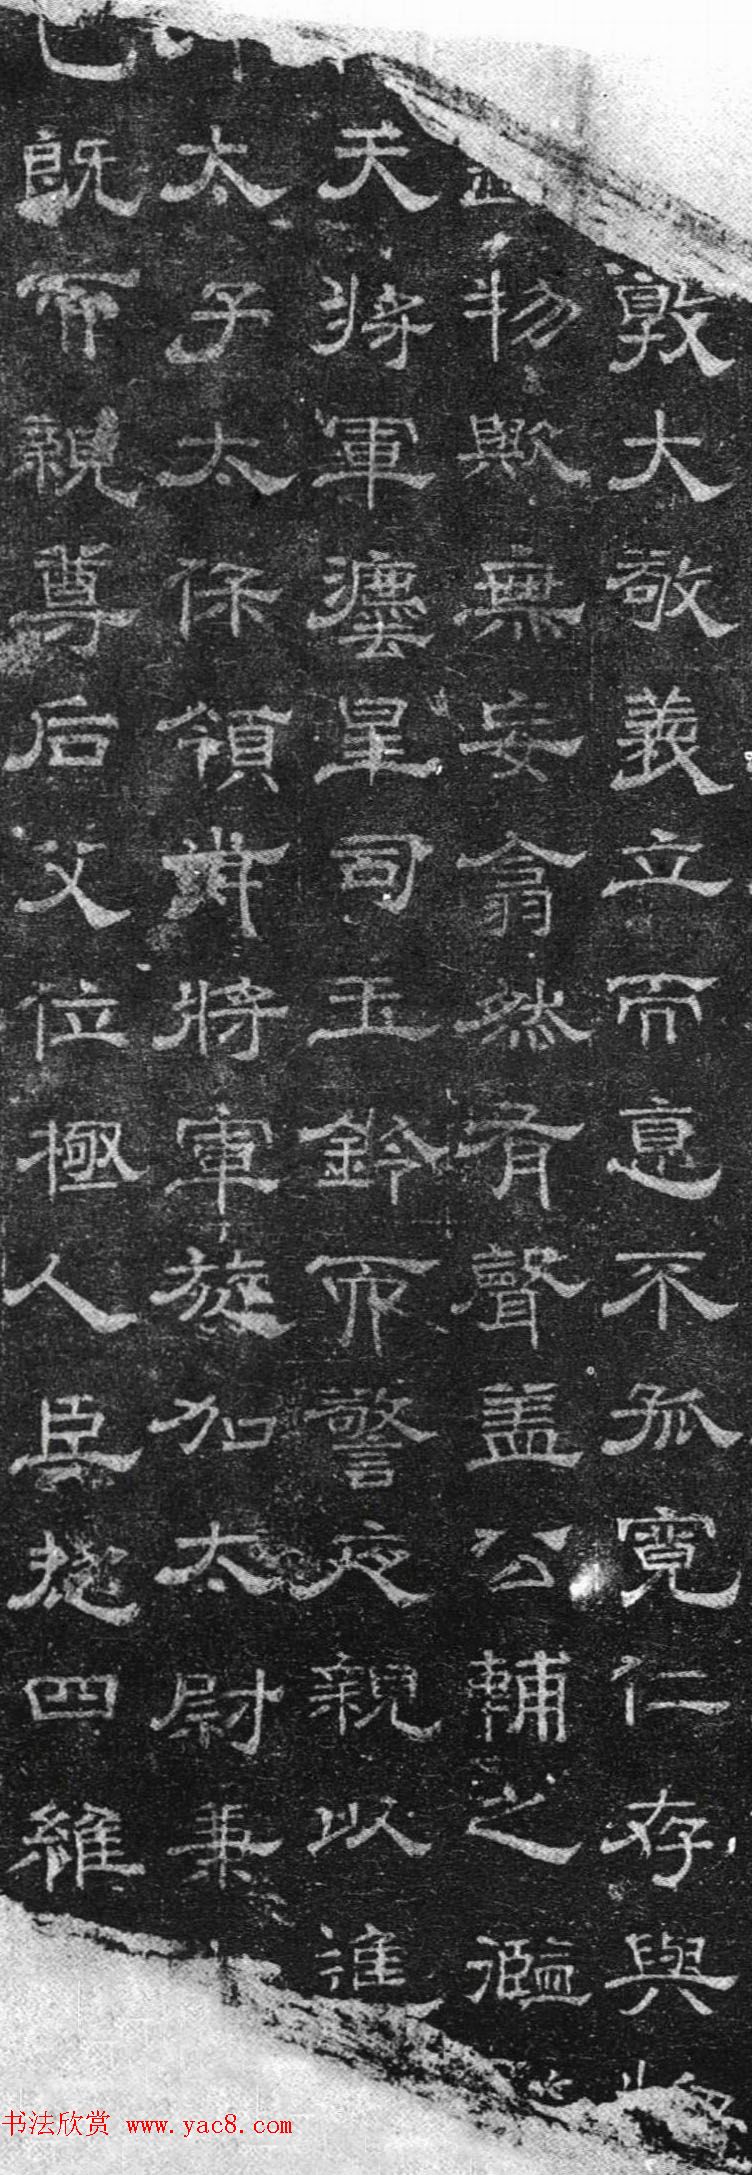 敦大敬義立而悳不孤寬仁存與
物歟無妄翕然有聲盖公輔之
天將軍星司玉鈐而警夜親以進
太子太保領將軍旋加太尉兼
既而親尊后父位極人臣四維
书法欣赏 www.yac8.com